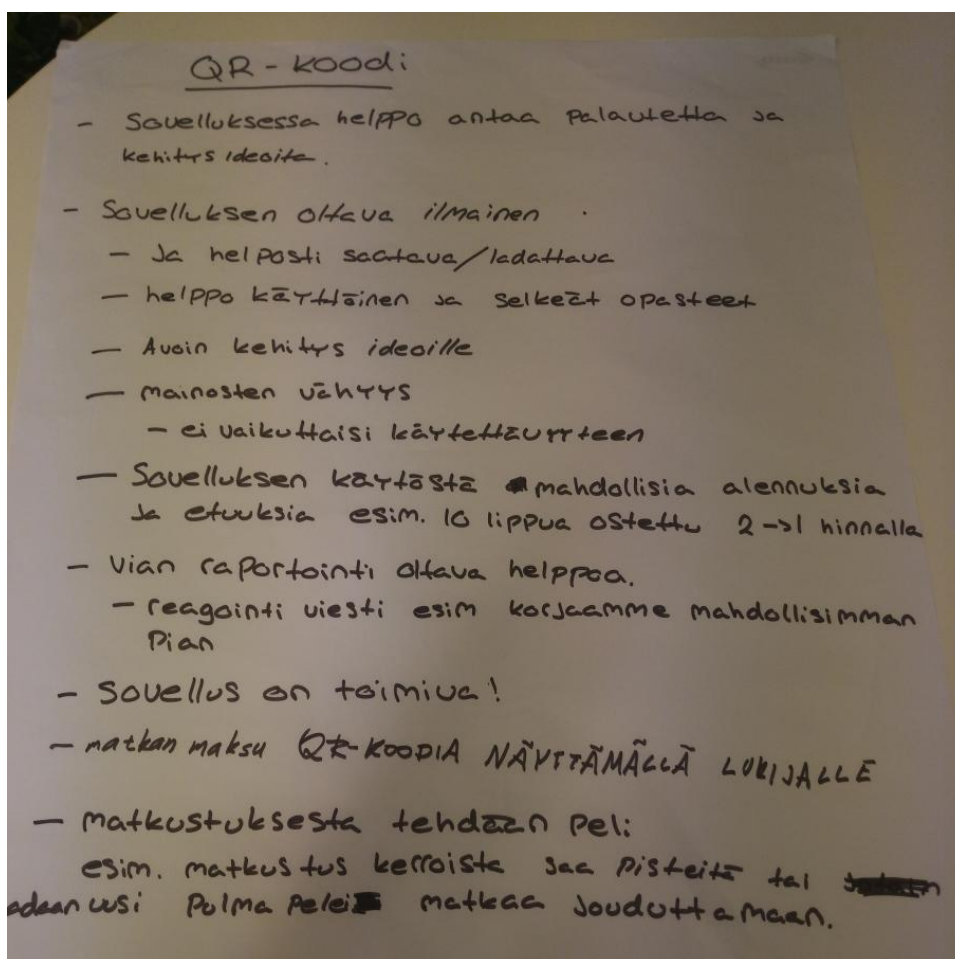 QR-koodi
- Sovelluksessa helppo antaa palautetta ja
kehitys ideoita.
- Sovelluksen oltava ilmainen
- Ja helposti saatava/ladattava
- helppo käyttöinen ja selkeät opasteet
- Avoin kehitys ideoille
- mainosten vähyys
- ei vaikuttaisi käytettävyyteen
- Sovelluksen käytöstä mahdollisia alennuksia
ja etuuksia esim. 10 lippua ostettu 2->1 hinnalla
- Vian raportointi oltava helppoa.
- reagointi viesti esim korjaamme mahdollisimman
pian
- Sovellus on toimiva!
- matkan maksu QR-KOODIA NÄYTTÄMÄLLÄ LUKIJALLE
- matkustuksesta tehdään peli
esim. matkustus kerroista saa pisteitä tai
uusi pulma pelei matkaa jouduttamaan.